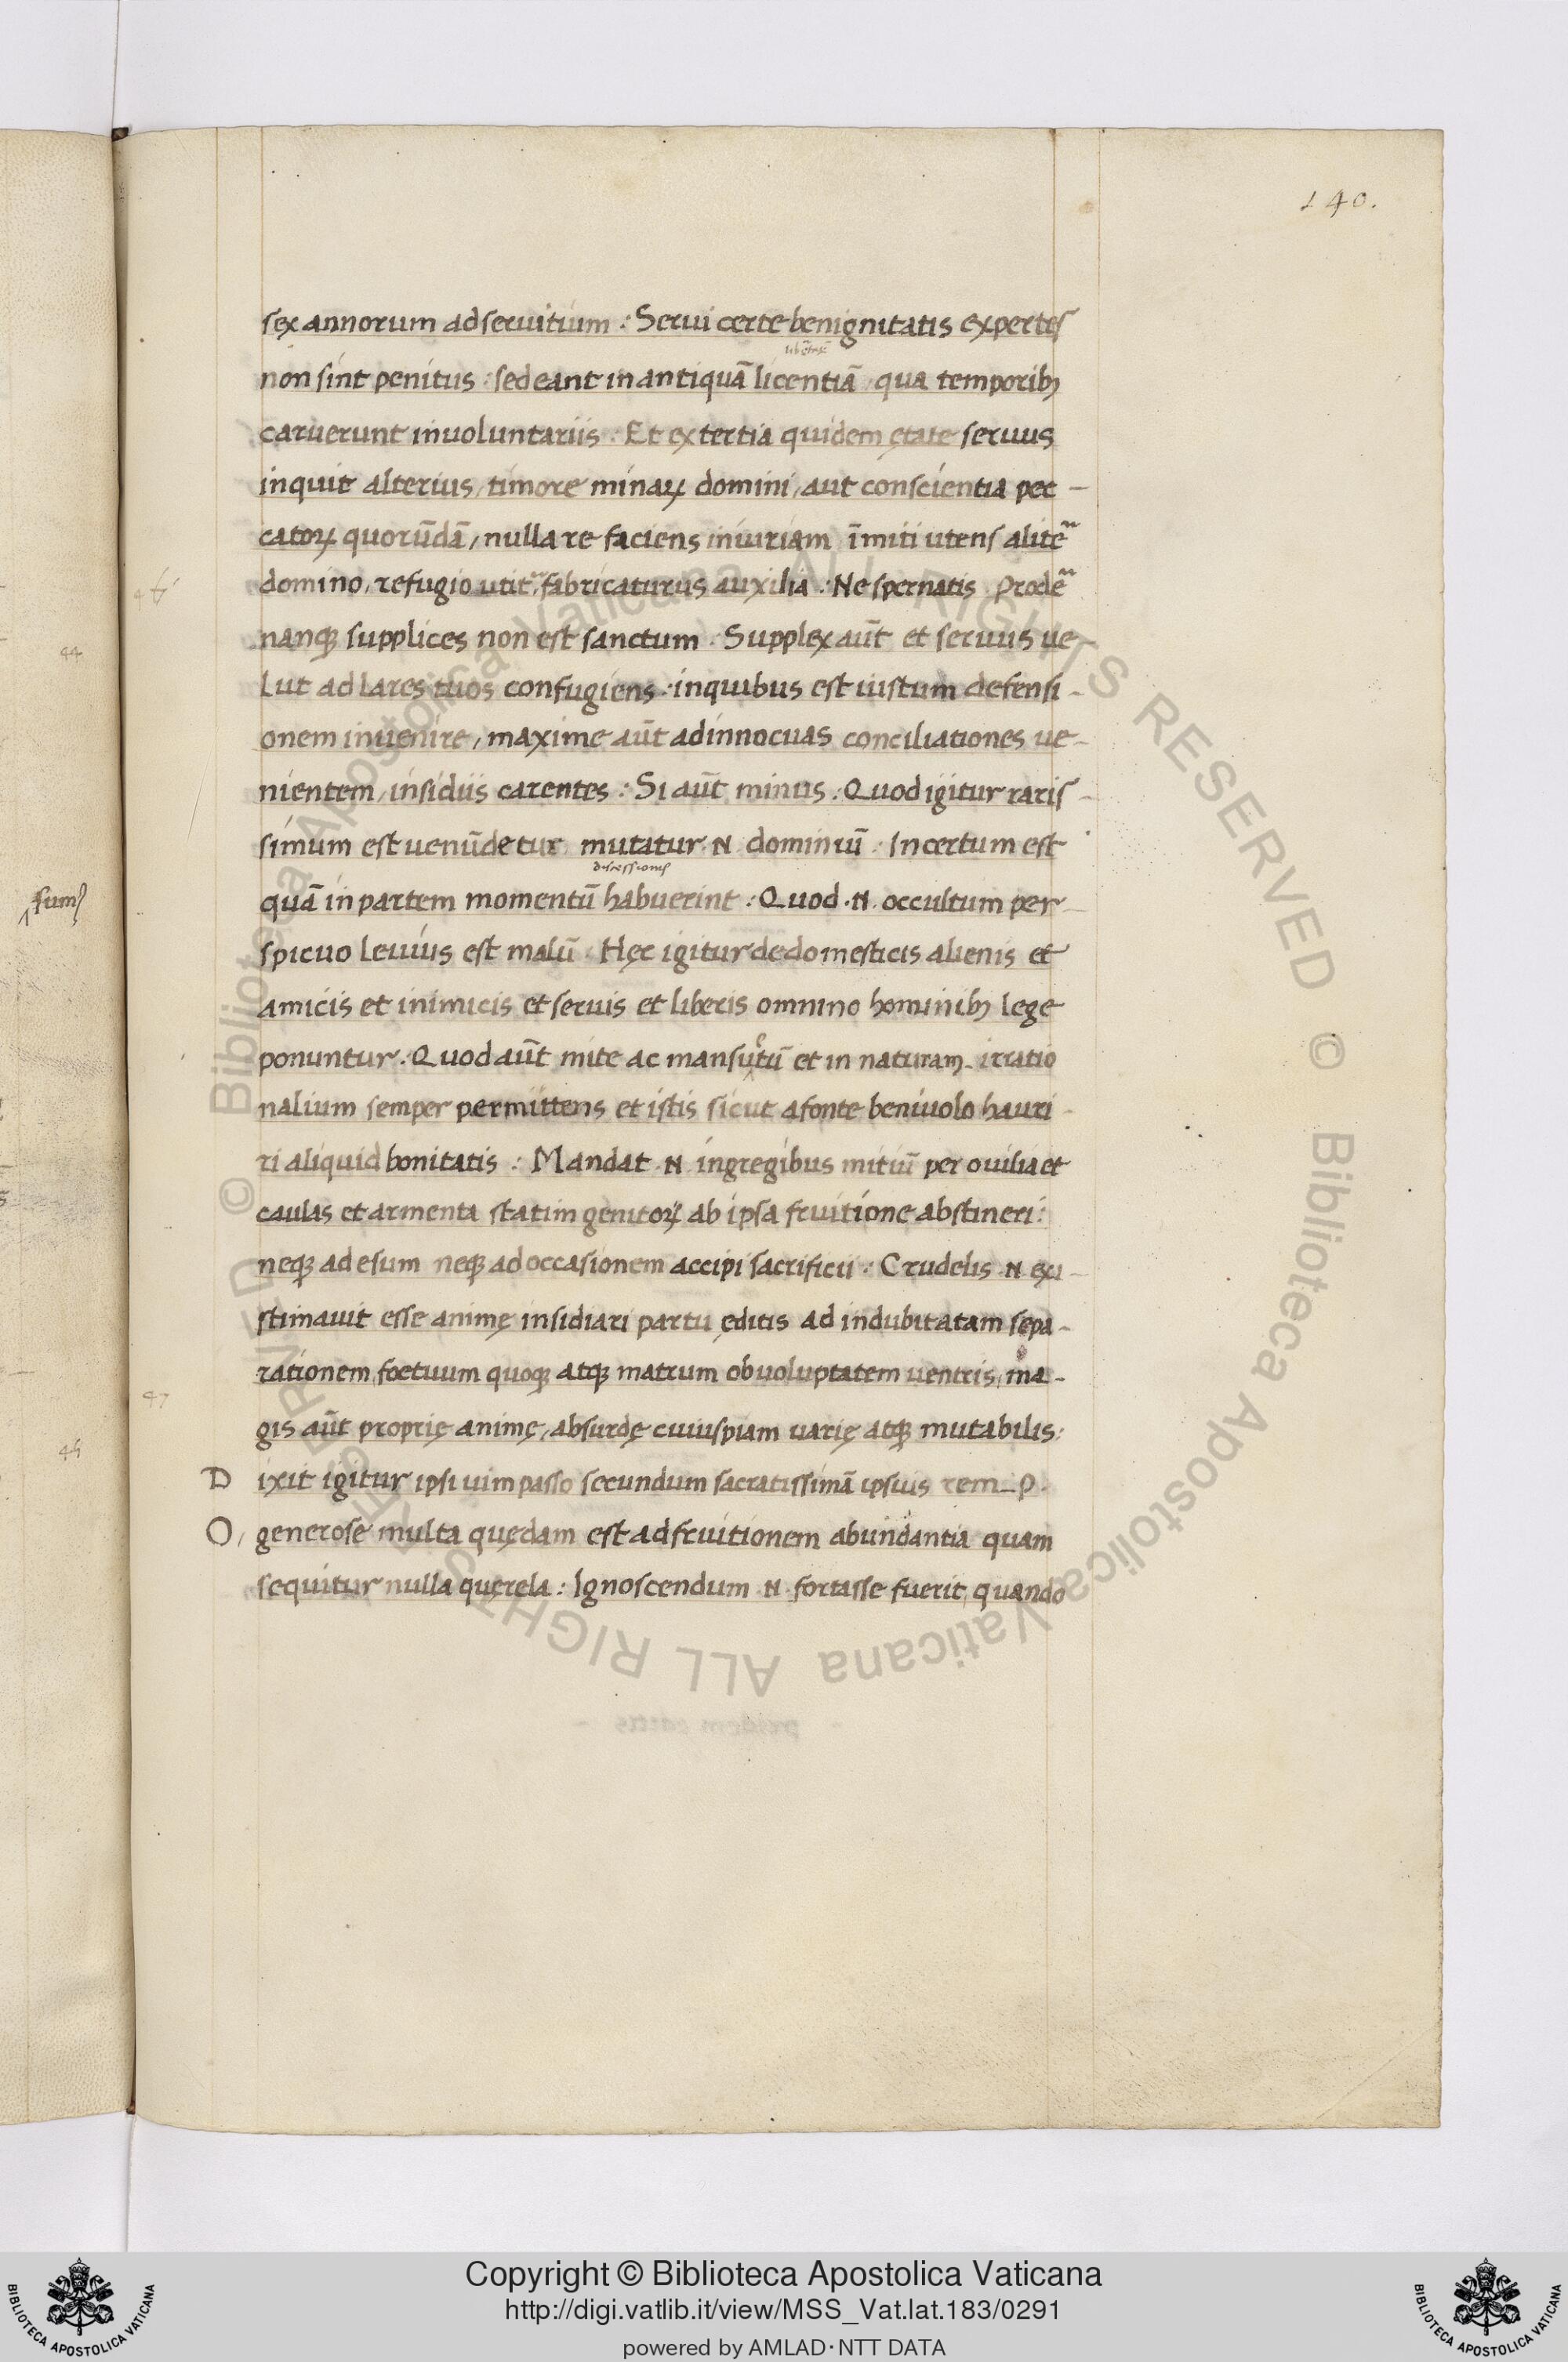 140.
sex annorum ad seruitium : Serui certe benignitatis expertes
non sint penitus : sed eant in antiquā licentiā qua temporibȝ
caruerunt inuoluntariis : Et ex tertia quidem ętate seruus
inquit alterius, timore minaꝝ domini, aut conscientia pec-
catoꝝ quorūdā, nulla re faciens iniuriam īmiti utens alitē
domino, refugio utit̃, fabricaturus auxilia : Ne spernatis Prodē
nanqꝫ supplices non est sanctum : Supplex aūt et seruus ue-
lut ad lares tuos confugiens : in quibus est iustum defensi-
onem inuenire, maxime aūt ad innocuas conciliationes ue-
nientem, insidiis carentes : Si aūt minus : Quod igitur raris-
simum est uenūdetur mutatur .N. dominiū : Incertum est
quā in partem momentū habuerint : Quod .N. occultum per-
spicuo leuius est malū : Hęc igitur de domesticis alienis et
amicis et inimicis et seruis et liberis omnino hominibȝ lege
ponuntur : Quod aūt mite ac mansuetū et in naturam irratio
nalium semper permittens et istis sicut a fonte beniuolo hauri-
ri aliquid bonitatis : Mandat .N. in gregibus mitiū per ouilia et
caulas et armenta statim genitoꝝ ab ipsa fruitione abstineri :
neqꝫ ad esum neqꝫ ad occasionem accipi sacrificii : Crudelis .N. exi-
stimauit esse animę insidiari partu ęditis ad indubitatam sepa-
rationem foetuum quoqꝫ atqꝫ matrum ob uoluptatem uentris, ma-
gis aūt proprię animę, absurdę cuiuspiam uarię atqꝫ mutabilis :
D ixit igitur ipsi uim passo secundum sacratissimā ipsius rem_p.
O, generose multa quędam est ad fruitionem abundantia quam
sequitur nulla quęrela : Ignoscendum .N. fortasse fuerit, quando
44
47
45
sumꝰ
© Biblioteca Apostolica Vaticana ALL RIGHTS RESERVED © Biblioteca Apostolica Vaticana ALL RIGHTS RESERVED
Copyright © Biblioteca Apostolica Vaticana
http://digi.vatlib.it/view/MSS_Vat.lat.183/0291
powered by AMLAD·NTT DATA
BIBLIOTECA APOSTOLICA VATICANA
BIBLIOTECA APOSTOLICA VATICANA